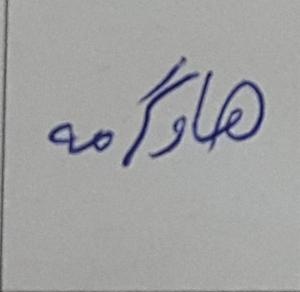 هاوگرمه